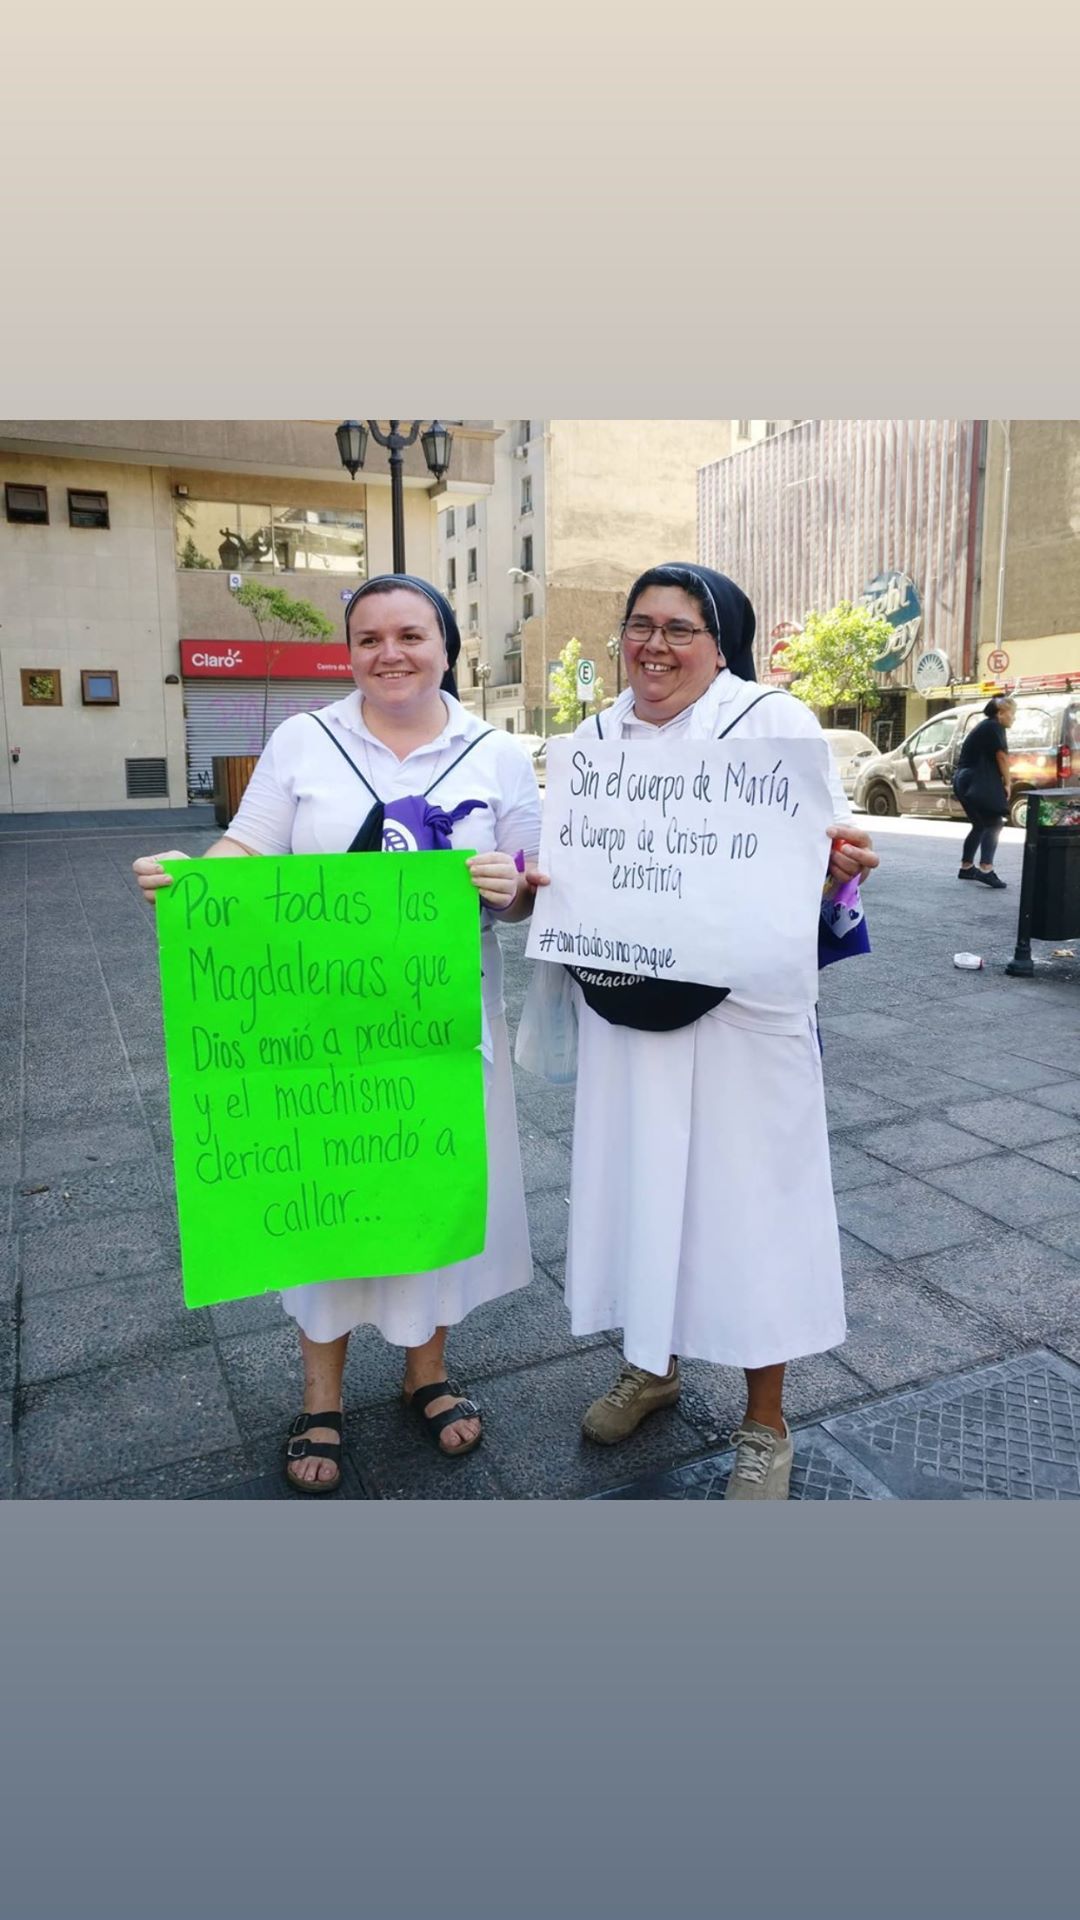 Claro
Centro de
E
Por todas las
Magdalenas que
Dios envió a predicar
y el machismo
clerical mandó a
callar...
Sin el cuerpo de María,
el Cuerpo de Cristo no
existiría
#contodosinopaque